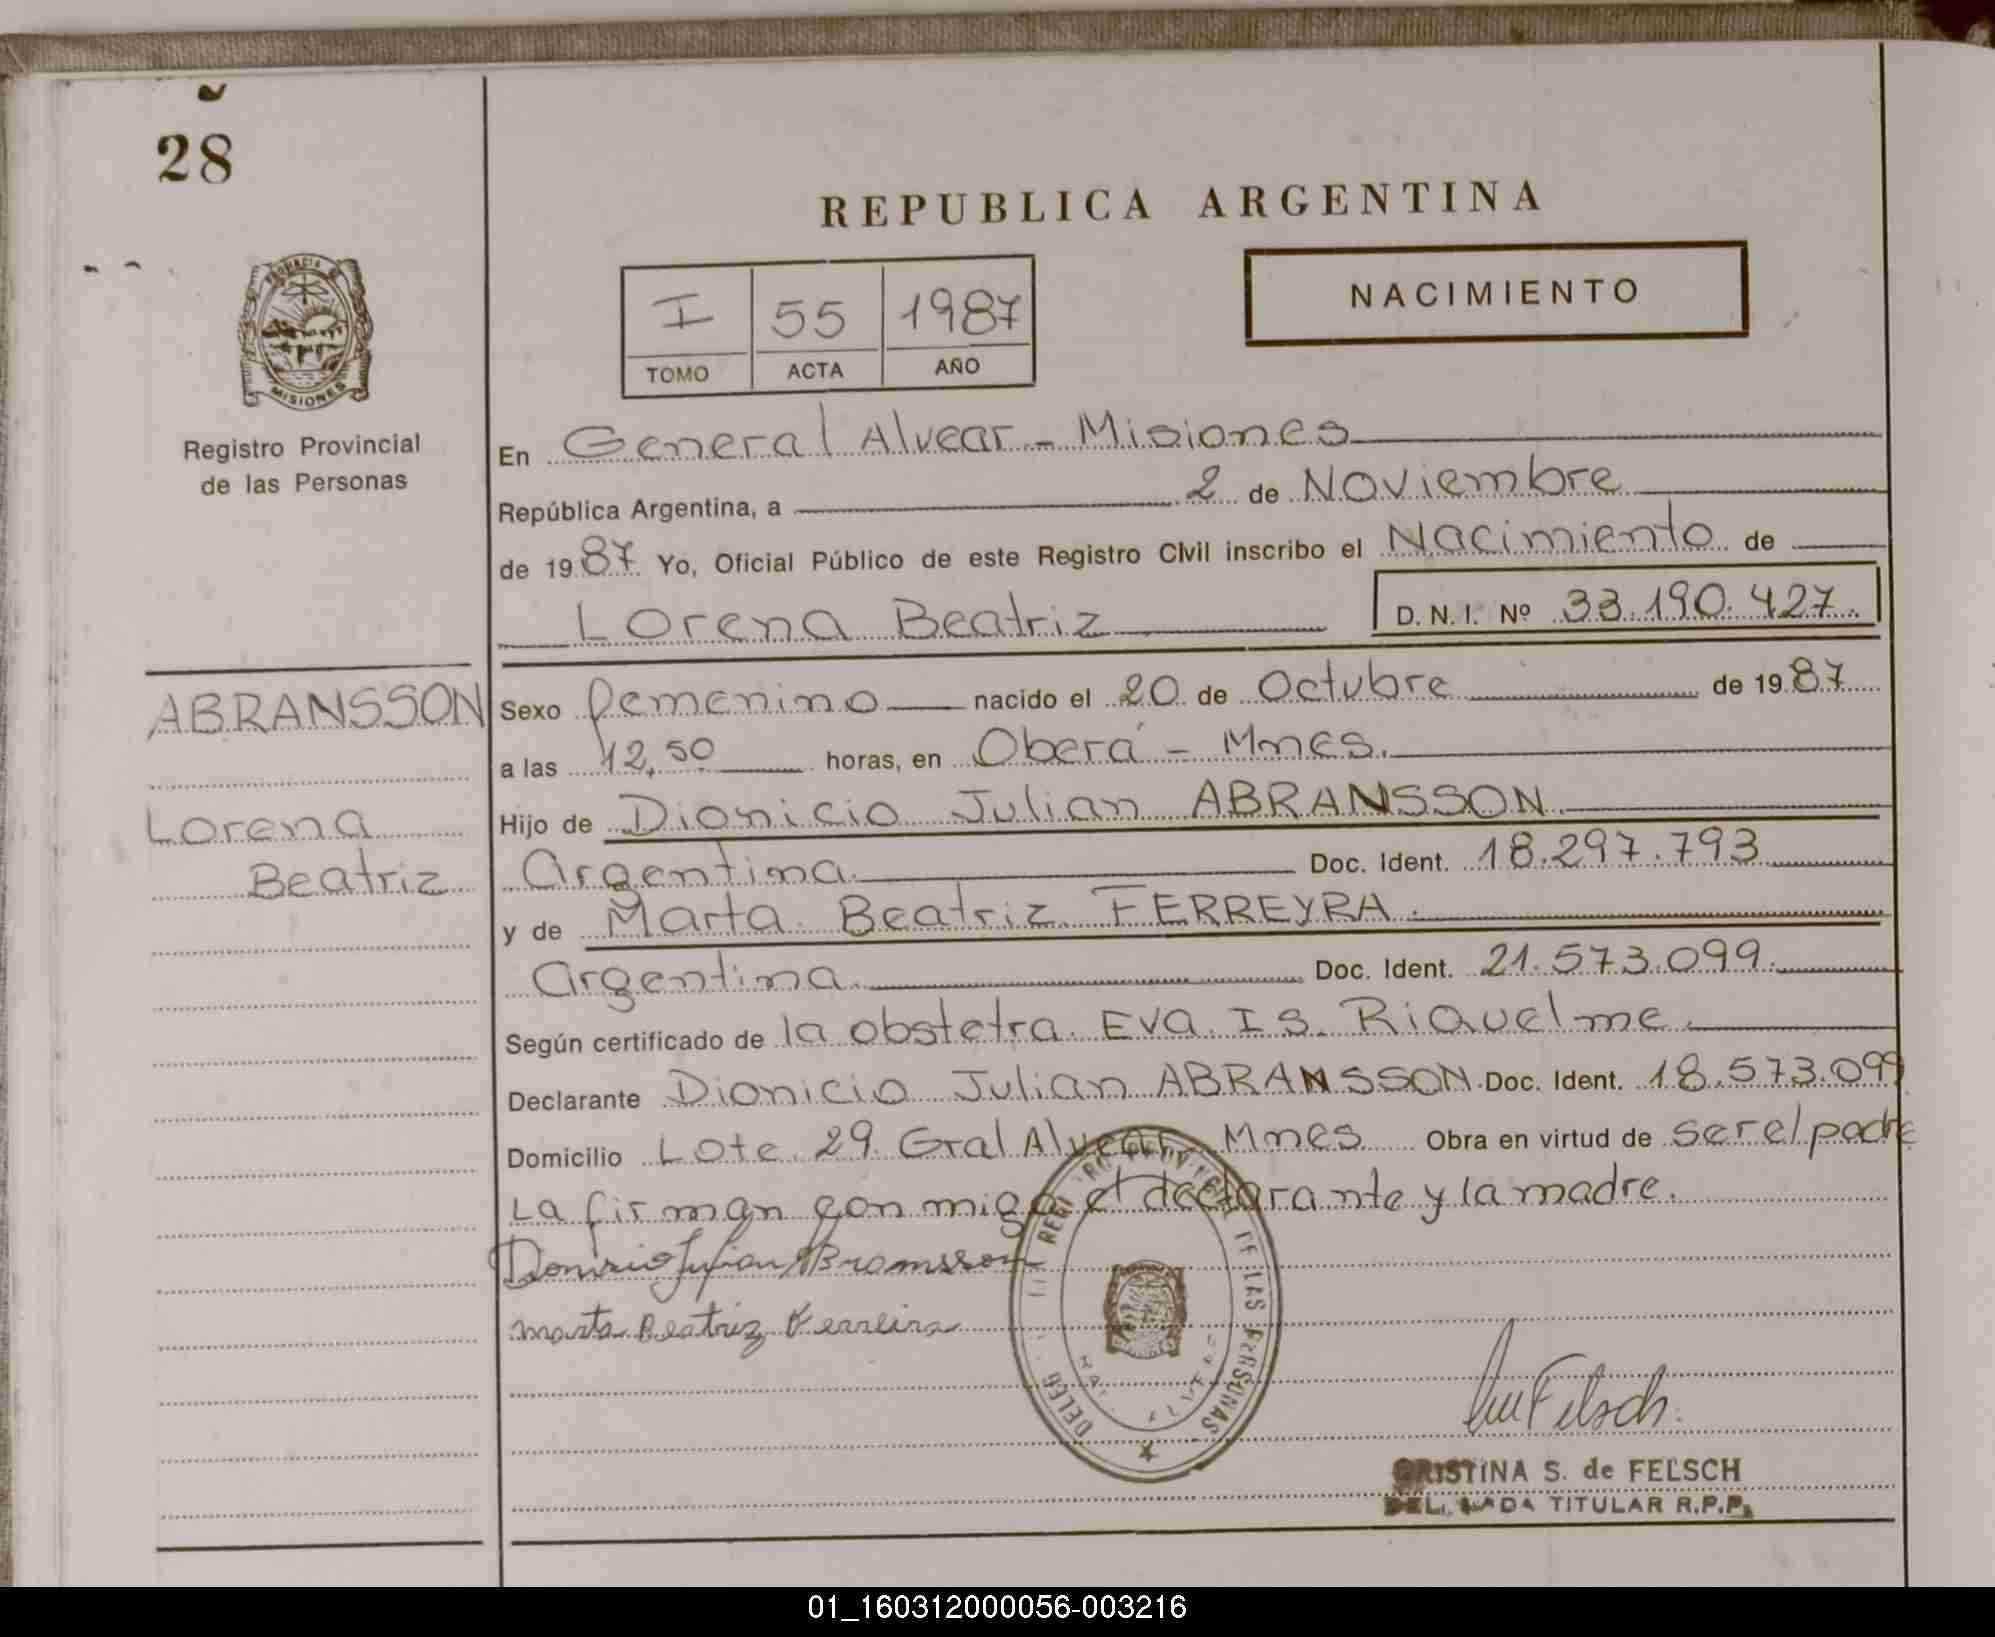 28
REPUBLICA ARGENTINA
I 55 1987
TOMO ACTA AÑO
NACIMIENTO
PROVINCIA DE
MISIONES
Registro Provincial
de las Personas
En General Alvear - Misiones
República Argentina, a 2 de Noviembre
de 1987 Yo, Oficial Público de este Registro Civil inscribo el Nacimiento de
Lorena Beatriz D. N. I. Nº 33.190.427.
ABRANSSON
Lorena
Beatriz
Sexo femenino nacido el 20 de Octubre de 1987
a las 12,50 horas, en Oberá - Mnes.
Hijo de Dionicio Julian ABRANSSON
Argentina. Doc. Ident. 18.297.793
y de Marta Beatriz FERREYRA.
Argentina. Doc. Ident. 21.573.099.
Según certificado de la obstetra Eva Is. Riquelme.
Declarante Dionicio Julian ABRANSSON. Doc. Ident. 18.573.099
Domicilio Lote 29 Gral Alvear Mnes Obra en virtud de ser el padre
La firman conmigo el declarante y la madre.
Dionicio Julian ABramsson
marta Beatriz Ferreira
DE LAS PERSONAS
Felsch.
CRISTINA S. de FELSCH
TITULAR R.P.P.
01_160312000056-003216